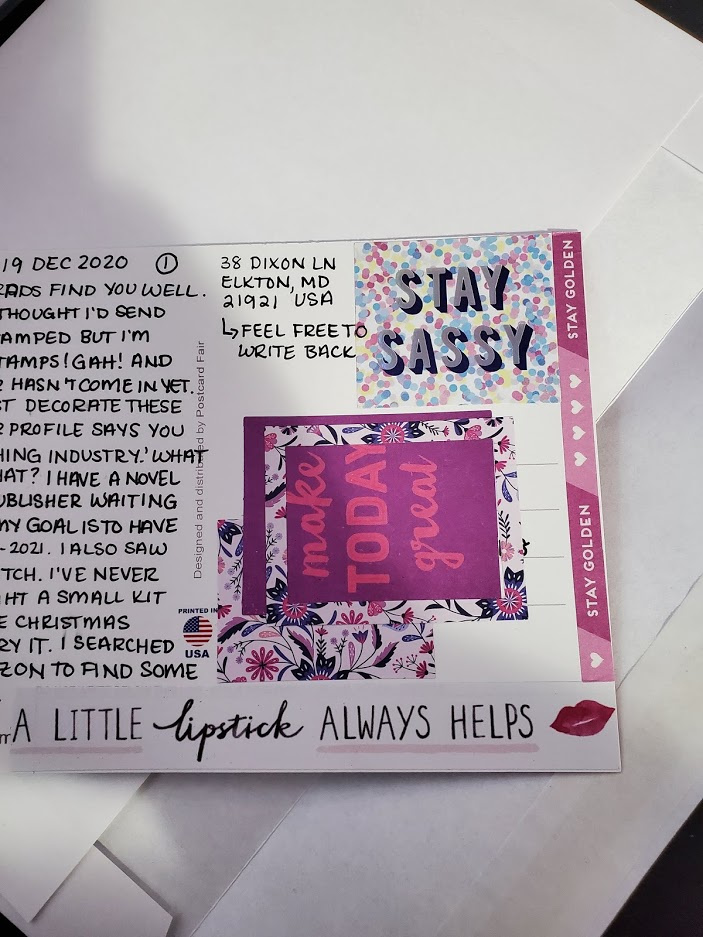 19 DEC 2020 ①
RDS FIND YOU WELL.
THOUGHT I'D SEND
AMPED BUT I'M
TAMPS! GAH! AND
HASN'T COME IN YET.
ST DECORATE THESE
R PROFILE SAYS YOU
HING INDUSTRY.' WHAT
HAT? I HAVE A NOVEL
UBLISHER WAITING
MY GOAL IS TO HAVE
-2021. I ALSO SAW
TCH. I'VE NEVER
HT A SMALL KIT
E CHRISTMAS
RY IT. I SEARCHED
ZON TO FIND SOME
Designed and distributed by Postcard Fair
PRINTED IN
USA
38 DIXON LN
ELKTON, MD
21921 USA
↳ FEEL FREE TO
WRITE BACK
STAY
SASSY
make
TODAY
great
STAY GOLDEN
STAY GOLDEN
A LITTLE lipstick ALWAYS HELPS